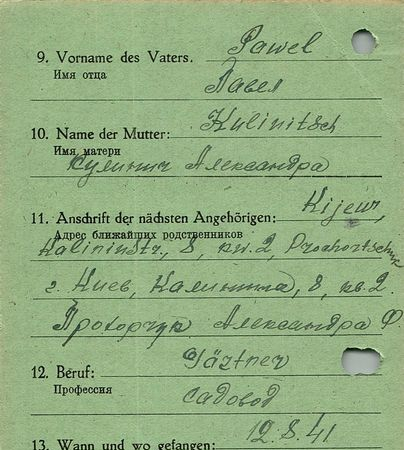 9. Vorname des Vaters. Pawel
Имя отца
Павел
10. Name der Mutter: Kulinitsch
Имя матери
Кулинич Александра
11. Anschrift der nächsten Angehörigen: Kijew,
Адрес ближайших родственников
Kalininstr., 8, kw. 2, Prochortschuk
г. Киев, Калинина, 8, кв. 2.
Прохорчук Александра Ф.
12. Beruf: Gärtner
Профессия
садовод
12.8.41
13. Wann und wo gefangen: